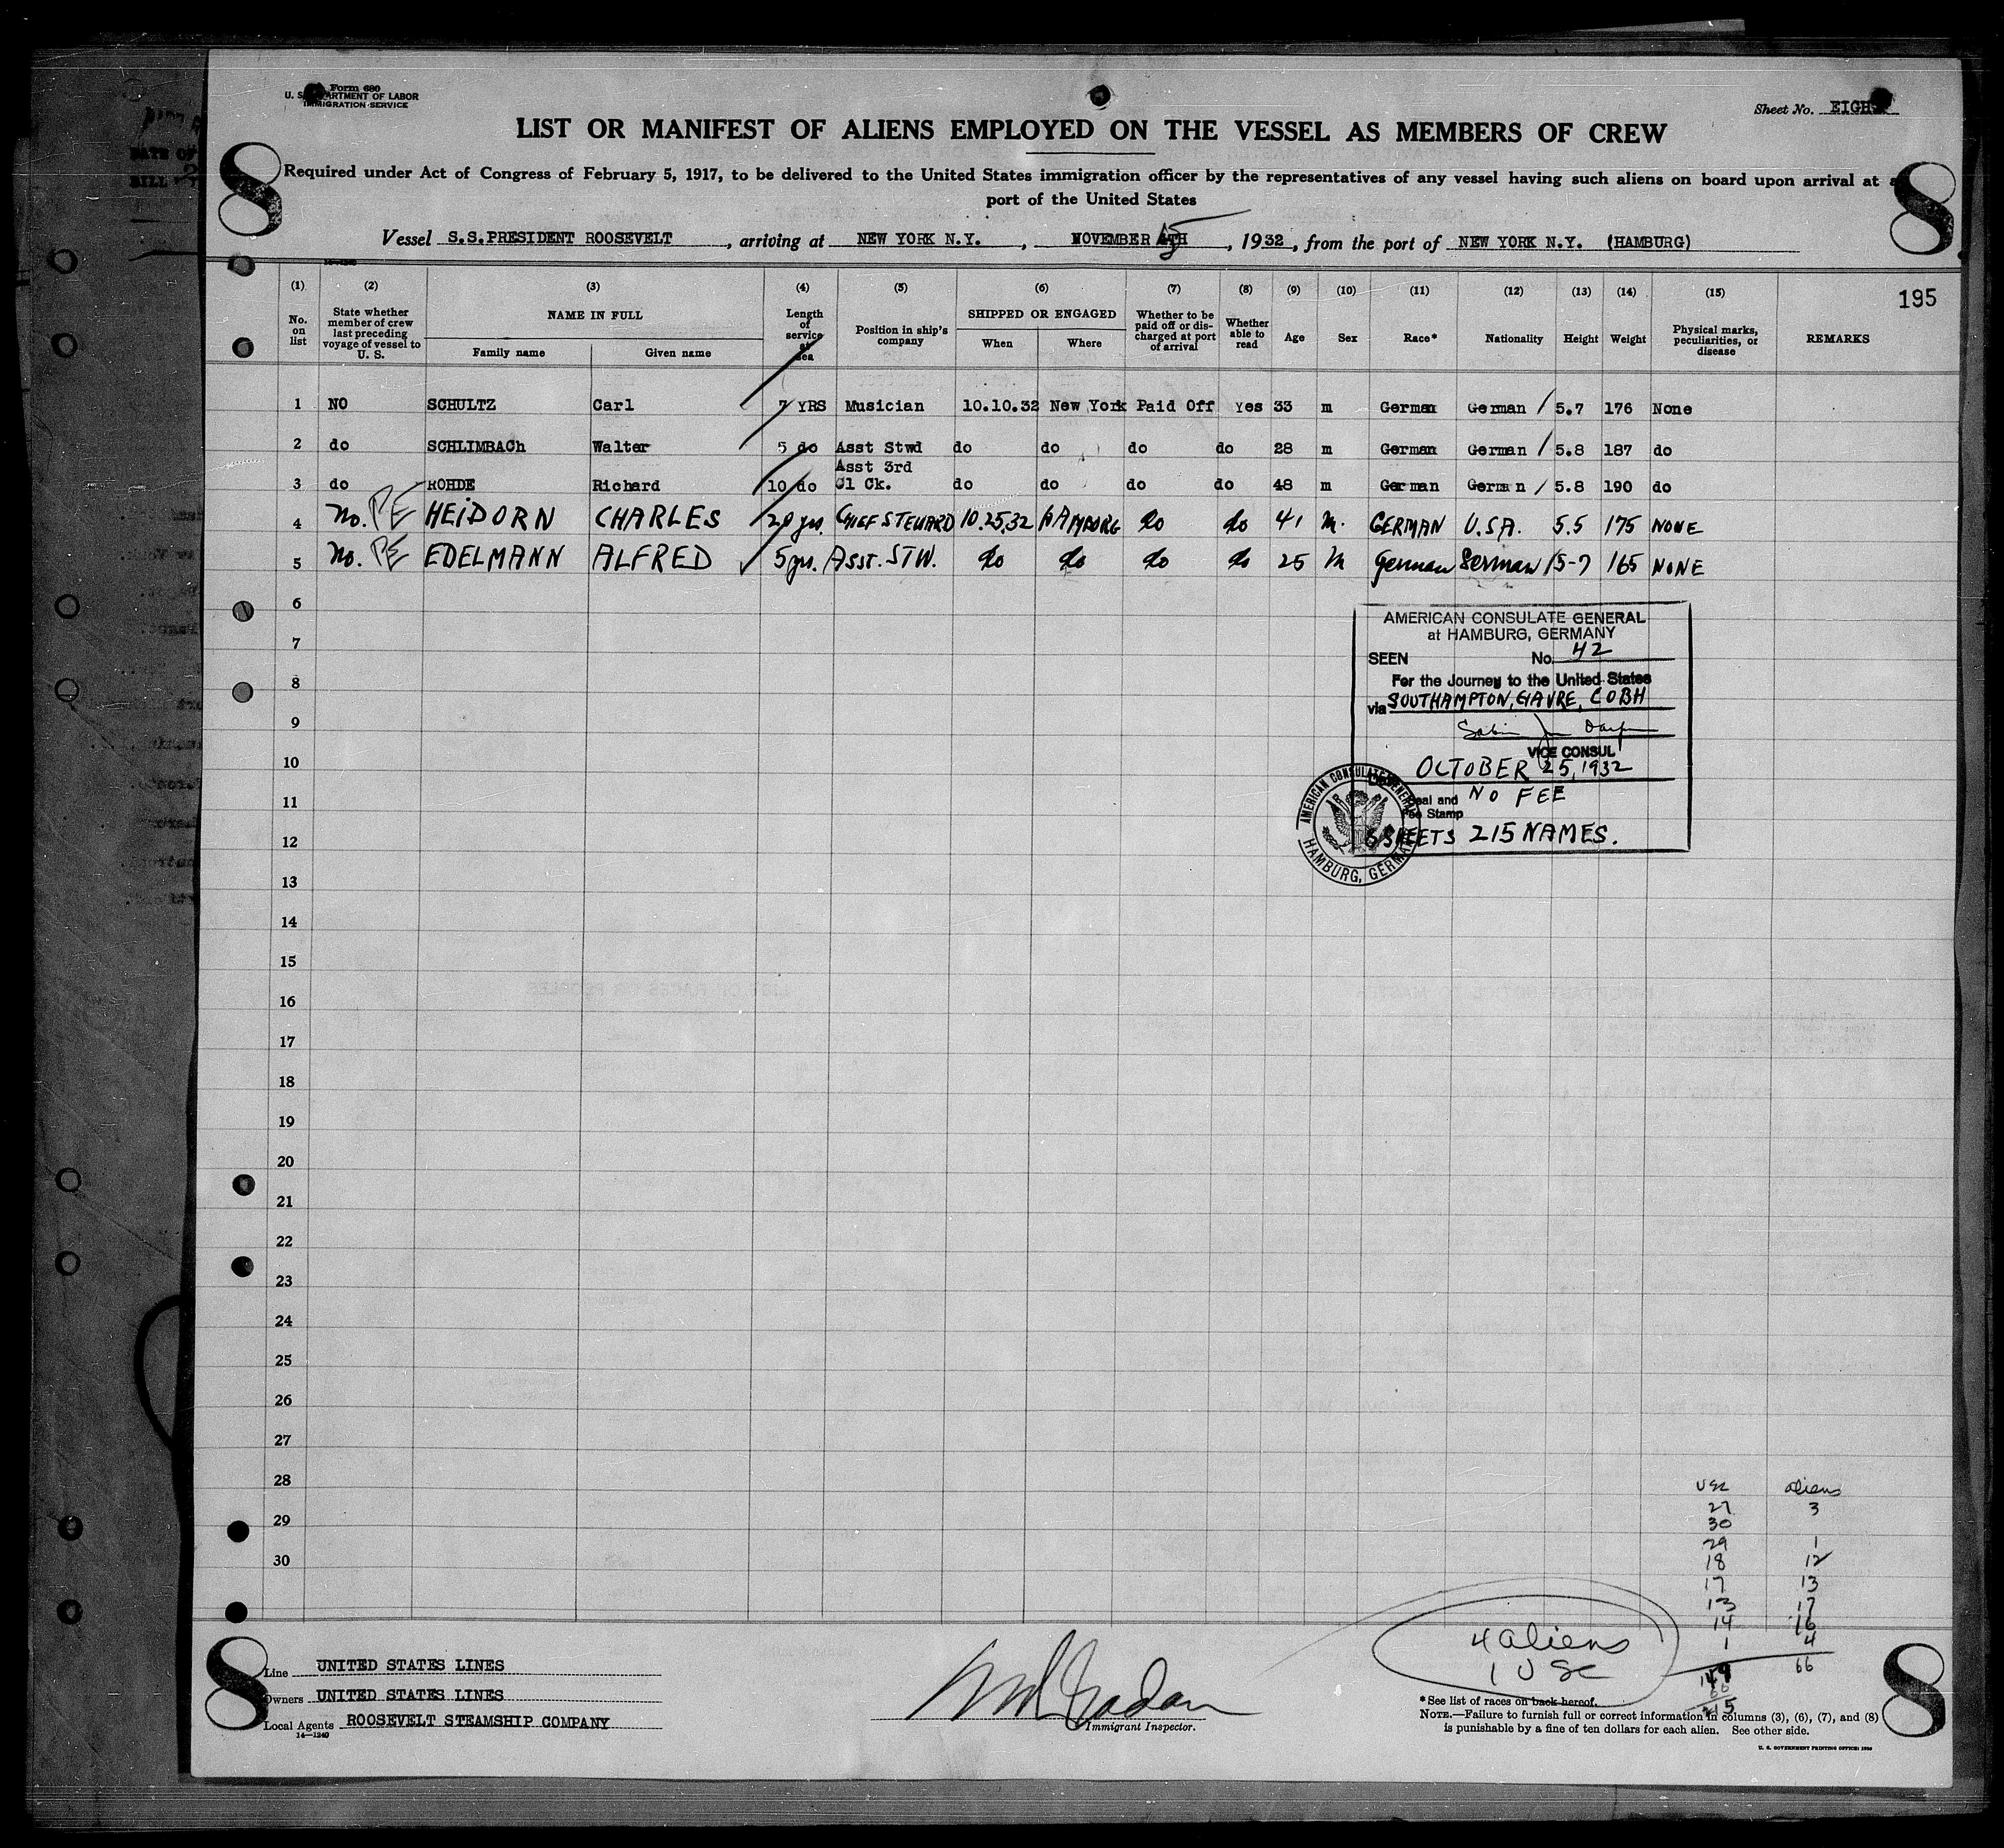 Form 680
U. S. DEPARTMENT OF LABOR
IMMIGRATION SERVICE
Sheet No. EIGHT
LIST OR MANIFEST OF ALIENS EMPLOYED ON THE VESSEL AS MEMBERS OF CREW
8
8
Required under Act of Congress of February 5, 1917, to be delivered to the United States immigration officer by the representatives of any vessel having such aliens on board upon arrival at a
port of the United States
Vessel S.S.PRESIDENT ROOSEVELT, arriving at NEW YORK N.Y., NOVEMBER 4TH 5, 1932, from the port of NEW YORK N.Y. (HAMBURG)
195
(1) No. on list
(2) State whether member of crew last preceding voyage of vessel to U. S.
(3) NAME IN FULL
Family name
Given name
(4) Length of service at sea
(5) Position in ship's company
(6) SHIPPED OR ENGAGED
When
Where
(7) Whether to be paid off or discharged at port of arrival
(8) Whether able to read
(9) Age
(10) Sex
(11) Race*
(12) Nationality
(13) Height
(14) Weight
(15) Physical marks, peculiarities, or disease
REMARKS
1 NO SCHULTZ Carl 7 YRS Musician 10.10.32 New York Paid Off Yes 33 m German German / 5.7 176 None
2 do SCHLIMBACh Walter 5 do Asst Stwd do do do do 28 m German German / 5.8 187 do
Asst 3rd
3 do ROHDE Richard 10 do Cl Ck. do do do do 48 m German German / 5.8 190 do
4 No. PE HEIDORN CHARLES 20 yrs. CHIEF STEWARD 10.25.32 HAMBURG do do 41 M. GERMAN U.S.A. 5.5 175 NONE
5 No. PE EDELMANN ALFRED 5 yrs. ASST. STW. do do do do 25 M German German / 5-7 165 NONE
6
7
8
9
10
11
12
13
14
15
16
17
18
19
20
21
22
23
24
25
26
27
28
29
30
AMERICAN CONSULATE GENERAL
at HAMBURG, GERMANY
SEEN No. 42
For the Journey to the United States
via SOUTHAMPTON, HAVRE, COBH
VICE CONSUL
OCTOBER 25, 1932
Seal and NO FEE
Fee Stamp
SHEETS 215 NAMES.
AMERICAN CONSULATE GENERAL
HAMBURG, GERMANY
USC aliens
27 3
30
29 1
18 12
17 13
13 17
14 16
1 4
149 66
66
215
4 aliens
1 USC
8
8
Line UNITED STATES LINES
Owners UNITED STATES LINES
Local Agents ROOSEVELT STEAMSHIP COMPANY
14—1240
Immigrant Inspector.
* See list of races on back hereof.
NOTE.—Failure to furnish full or correct information in columns (3), (6), (7), and (8)
is punishable by a fine of ten dollars for each alien. See other side.